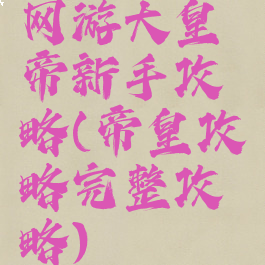 网游大皇
帝新手攻
略(帝皇攻
略完整攻
略)